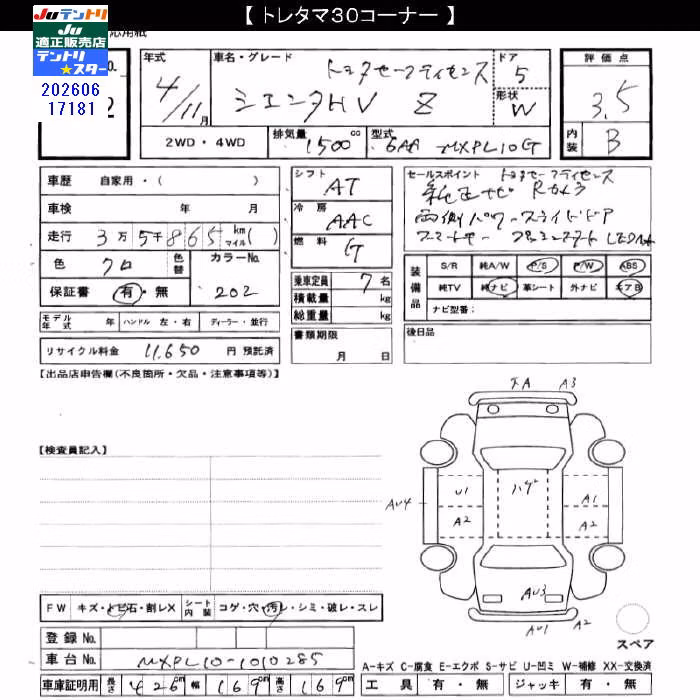 【 トレタマ30コーナー 】
Juテントリ
Ju
適正販売店
テントリ
★スター
202606
17181
応用紙
No.
2
年式
4/11月
車名・グレード
トヨタセーフティセンス
シエンタHV Z
ドア
5
形状
W
評価点
3.5
内装
B
2WD・4WD
排気量
1500cc
型式
6AA-MXPL10G
車歴 自家用・( )
車検 年 月
走行 3万5千865km マイル( )
色 クロ 色替
カラーNo.
202
保証書 有・無
シフト
AT
冷房
AAC
燃料
G
乗車定員 7名
積載量 kg
総重量 kg
セールスポイント トヨタセーフティセンス
純正ナビ Rカメラ
両側パワースライドドア
スマートキー プッシュスタート LEDライト
装備品
S/R 純A/W P/S P/W ABS
純TV 純ナビ 革シート 外ナビ エアB
ナビ型番:
モデル年式 年 ハンドル 左・右 ディーラー・並行
リサイクル料金 11,650 円 預託済
書類期限
月 日
後日品
【出品店申告欄(不良箇所・欠品・注意事項等)】
【検査員記入】
A3
AU4
U1
A2
ハゲ
A1
A2
AU3
AU1 A2
スペア
FW キズ・トビ石・割レX シート内装 コゲ・穴・汚レ・シミ・破レ・スレ
登録No.
車台No. MXPL10-1010285
車庫証明用 長さ 426cm 幅 169cm 高さ 169cm
A-キズ C-腐食 E-エクボ S-サビ U-凹ミ W-補修 XX-交換済
工具 有・無 ジャッキ 有・無